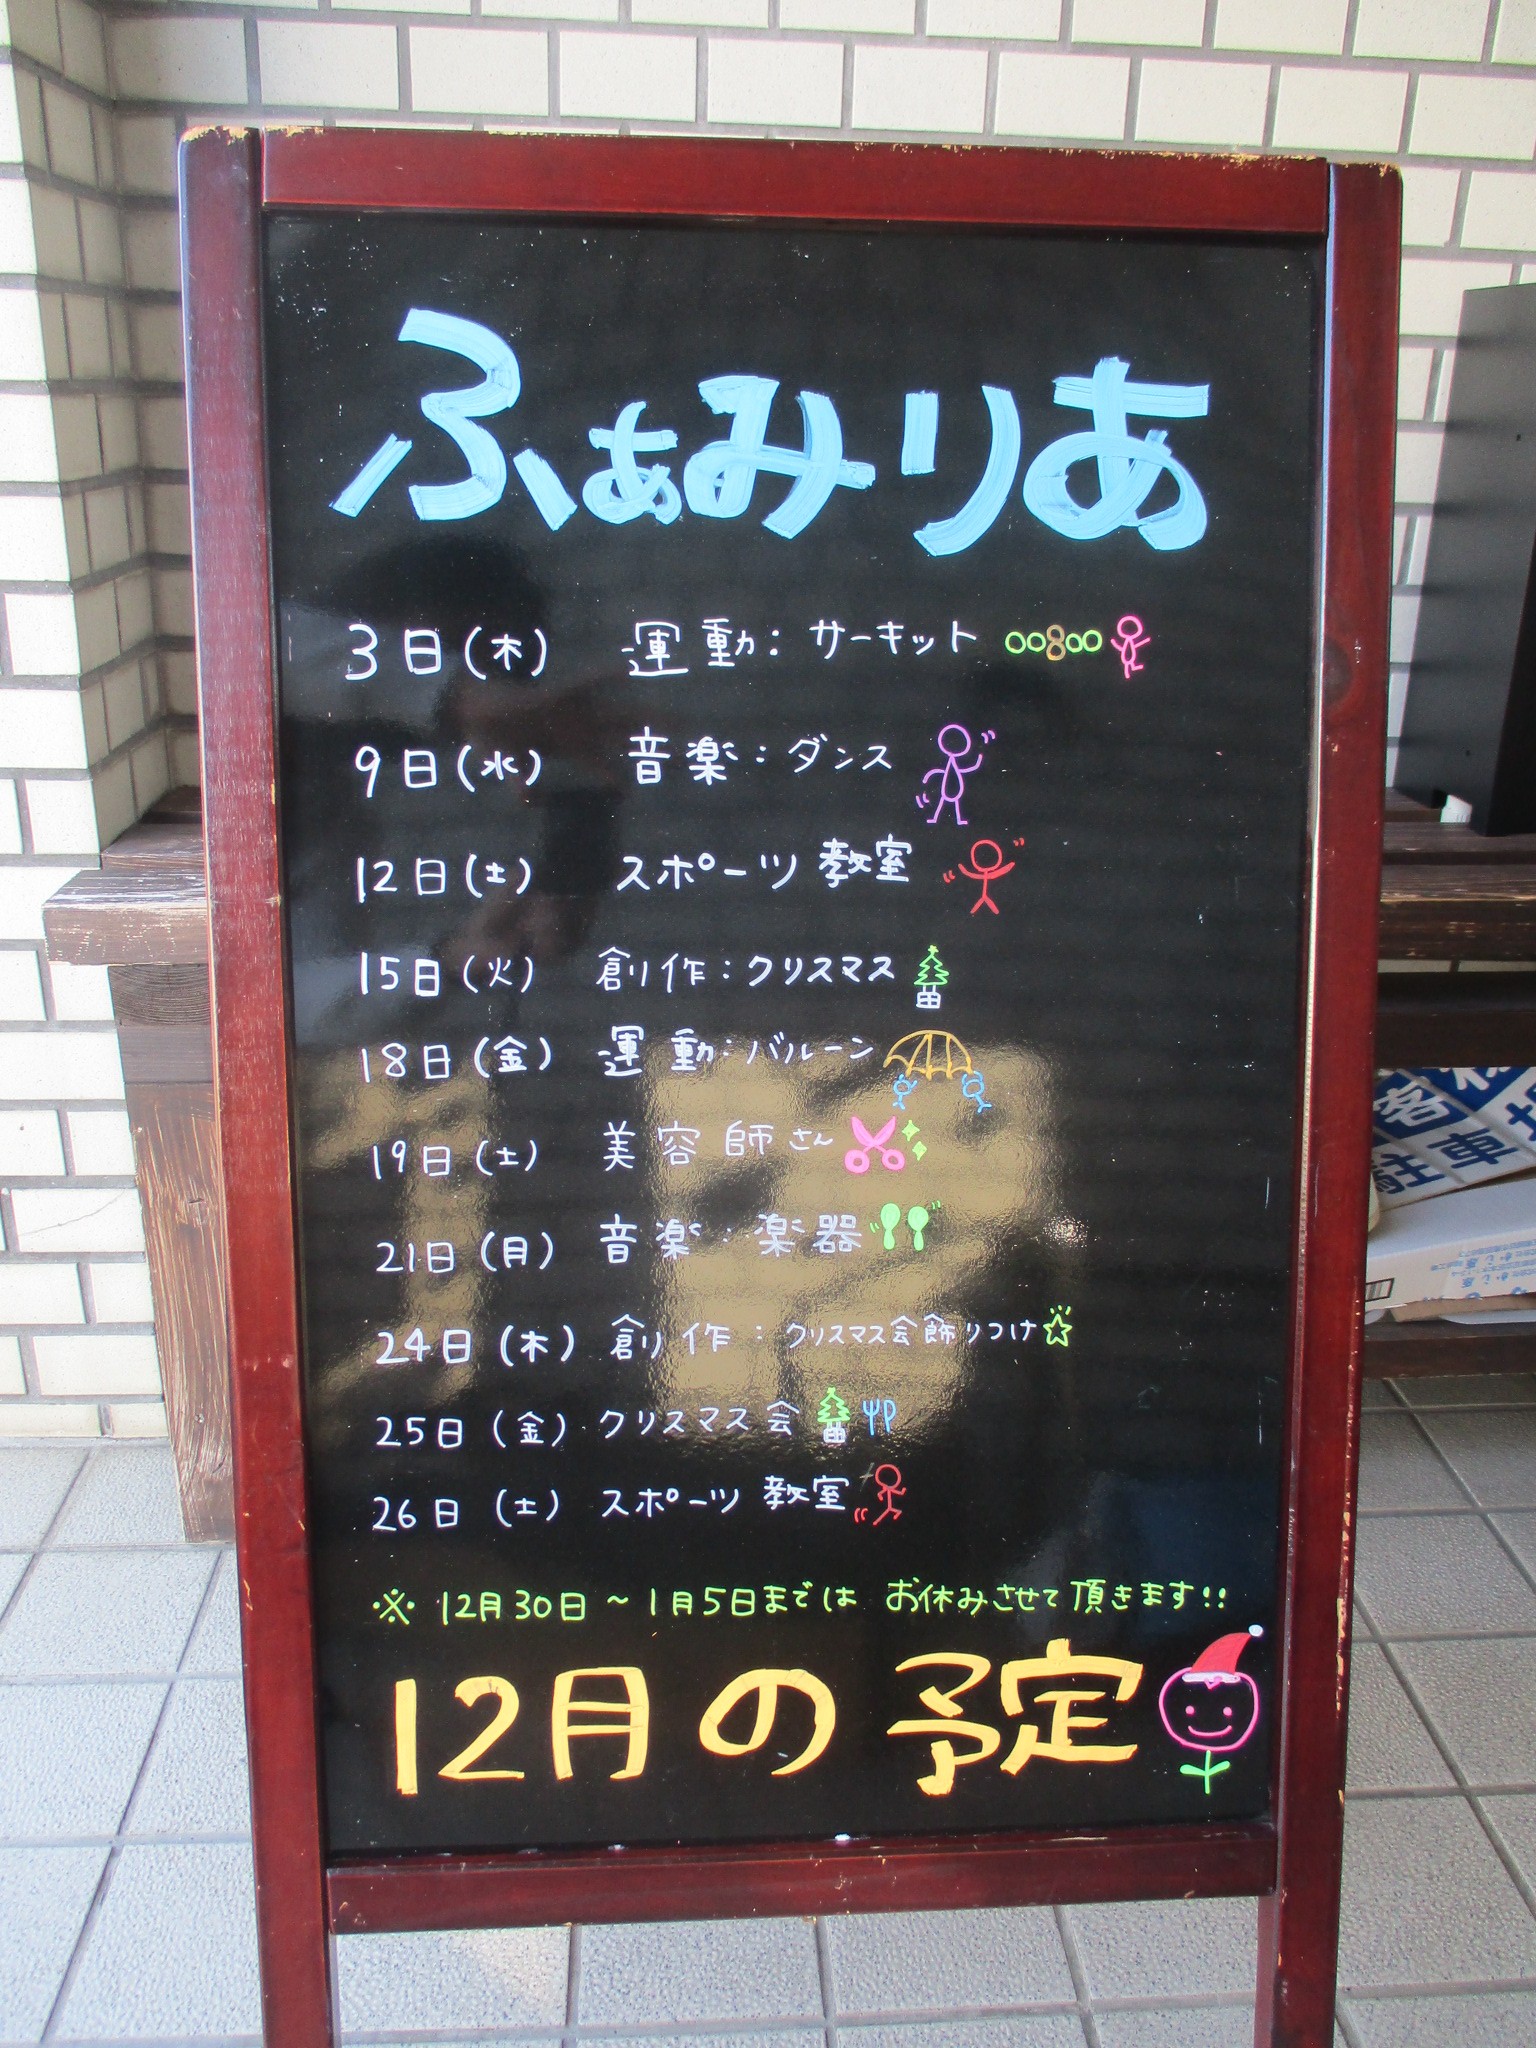 ふぁみりあ
3日(木) 運動：サーキット
9日(水) 音楽：ダンス
12日(土) スポーツ教室
15日(火) 創作：クリスマス
18日(金) 運動：バルーン
19日(土) 美容師さん
21日(月) 音楽：楽器
24日(木) 創作：クリスマス会飾りつけ
25日(金) クリスマス会
26日(土) スポーツ教室
※12月30日～1月5日までは お休みさせて頂きます!!
12月の予定
客様
駐車場